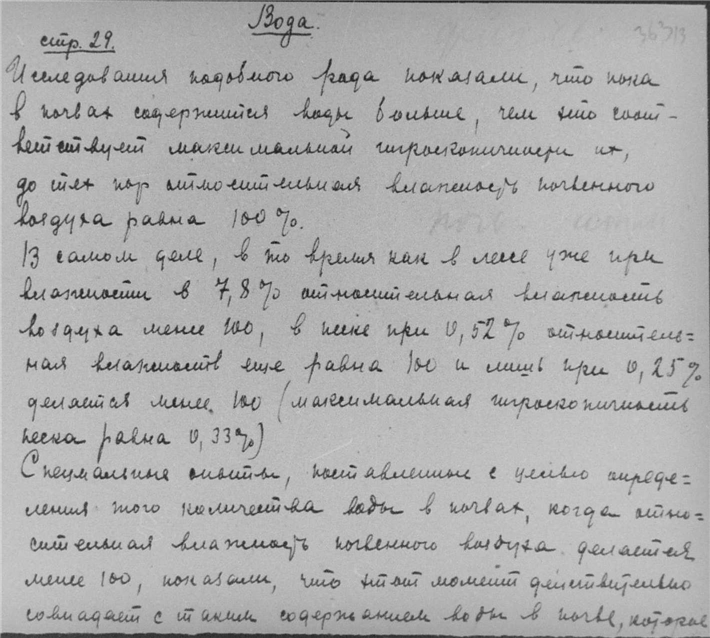 Вода.
стр. 29.
Исследования подобного рода показали, что пока
в почвах содержится воды больше, чем это соот-
ветствует максимальной гигроскопичности их,
до тех пор относительная влажность почвенного
воздуха равна 100%.
В самом деле, в то время как в лессе уже при
влажности в 7,8% относительная влажность
воздуха менее 100, в песке при 0,52% относитель=
ная влажность еще равна 100 и лишь при 0,25%
делается менее 100 (максимальная гигроскопичность
песка равна 0,33%)
Специальные опыты, поставленные с целью опреде=
ления того количества воды в почвах, когда отно=
сительная влажность почвенного воздуха делается
менее 100, показали, что этот момент действительно
совпадает с таким содержанием воды в почве, которое